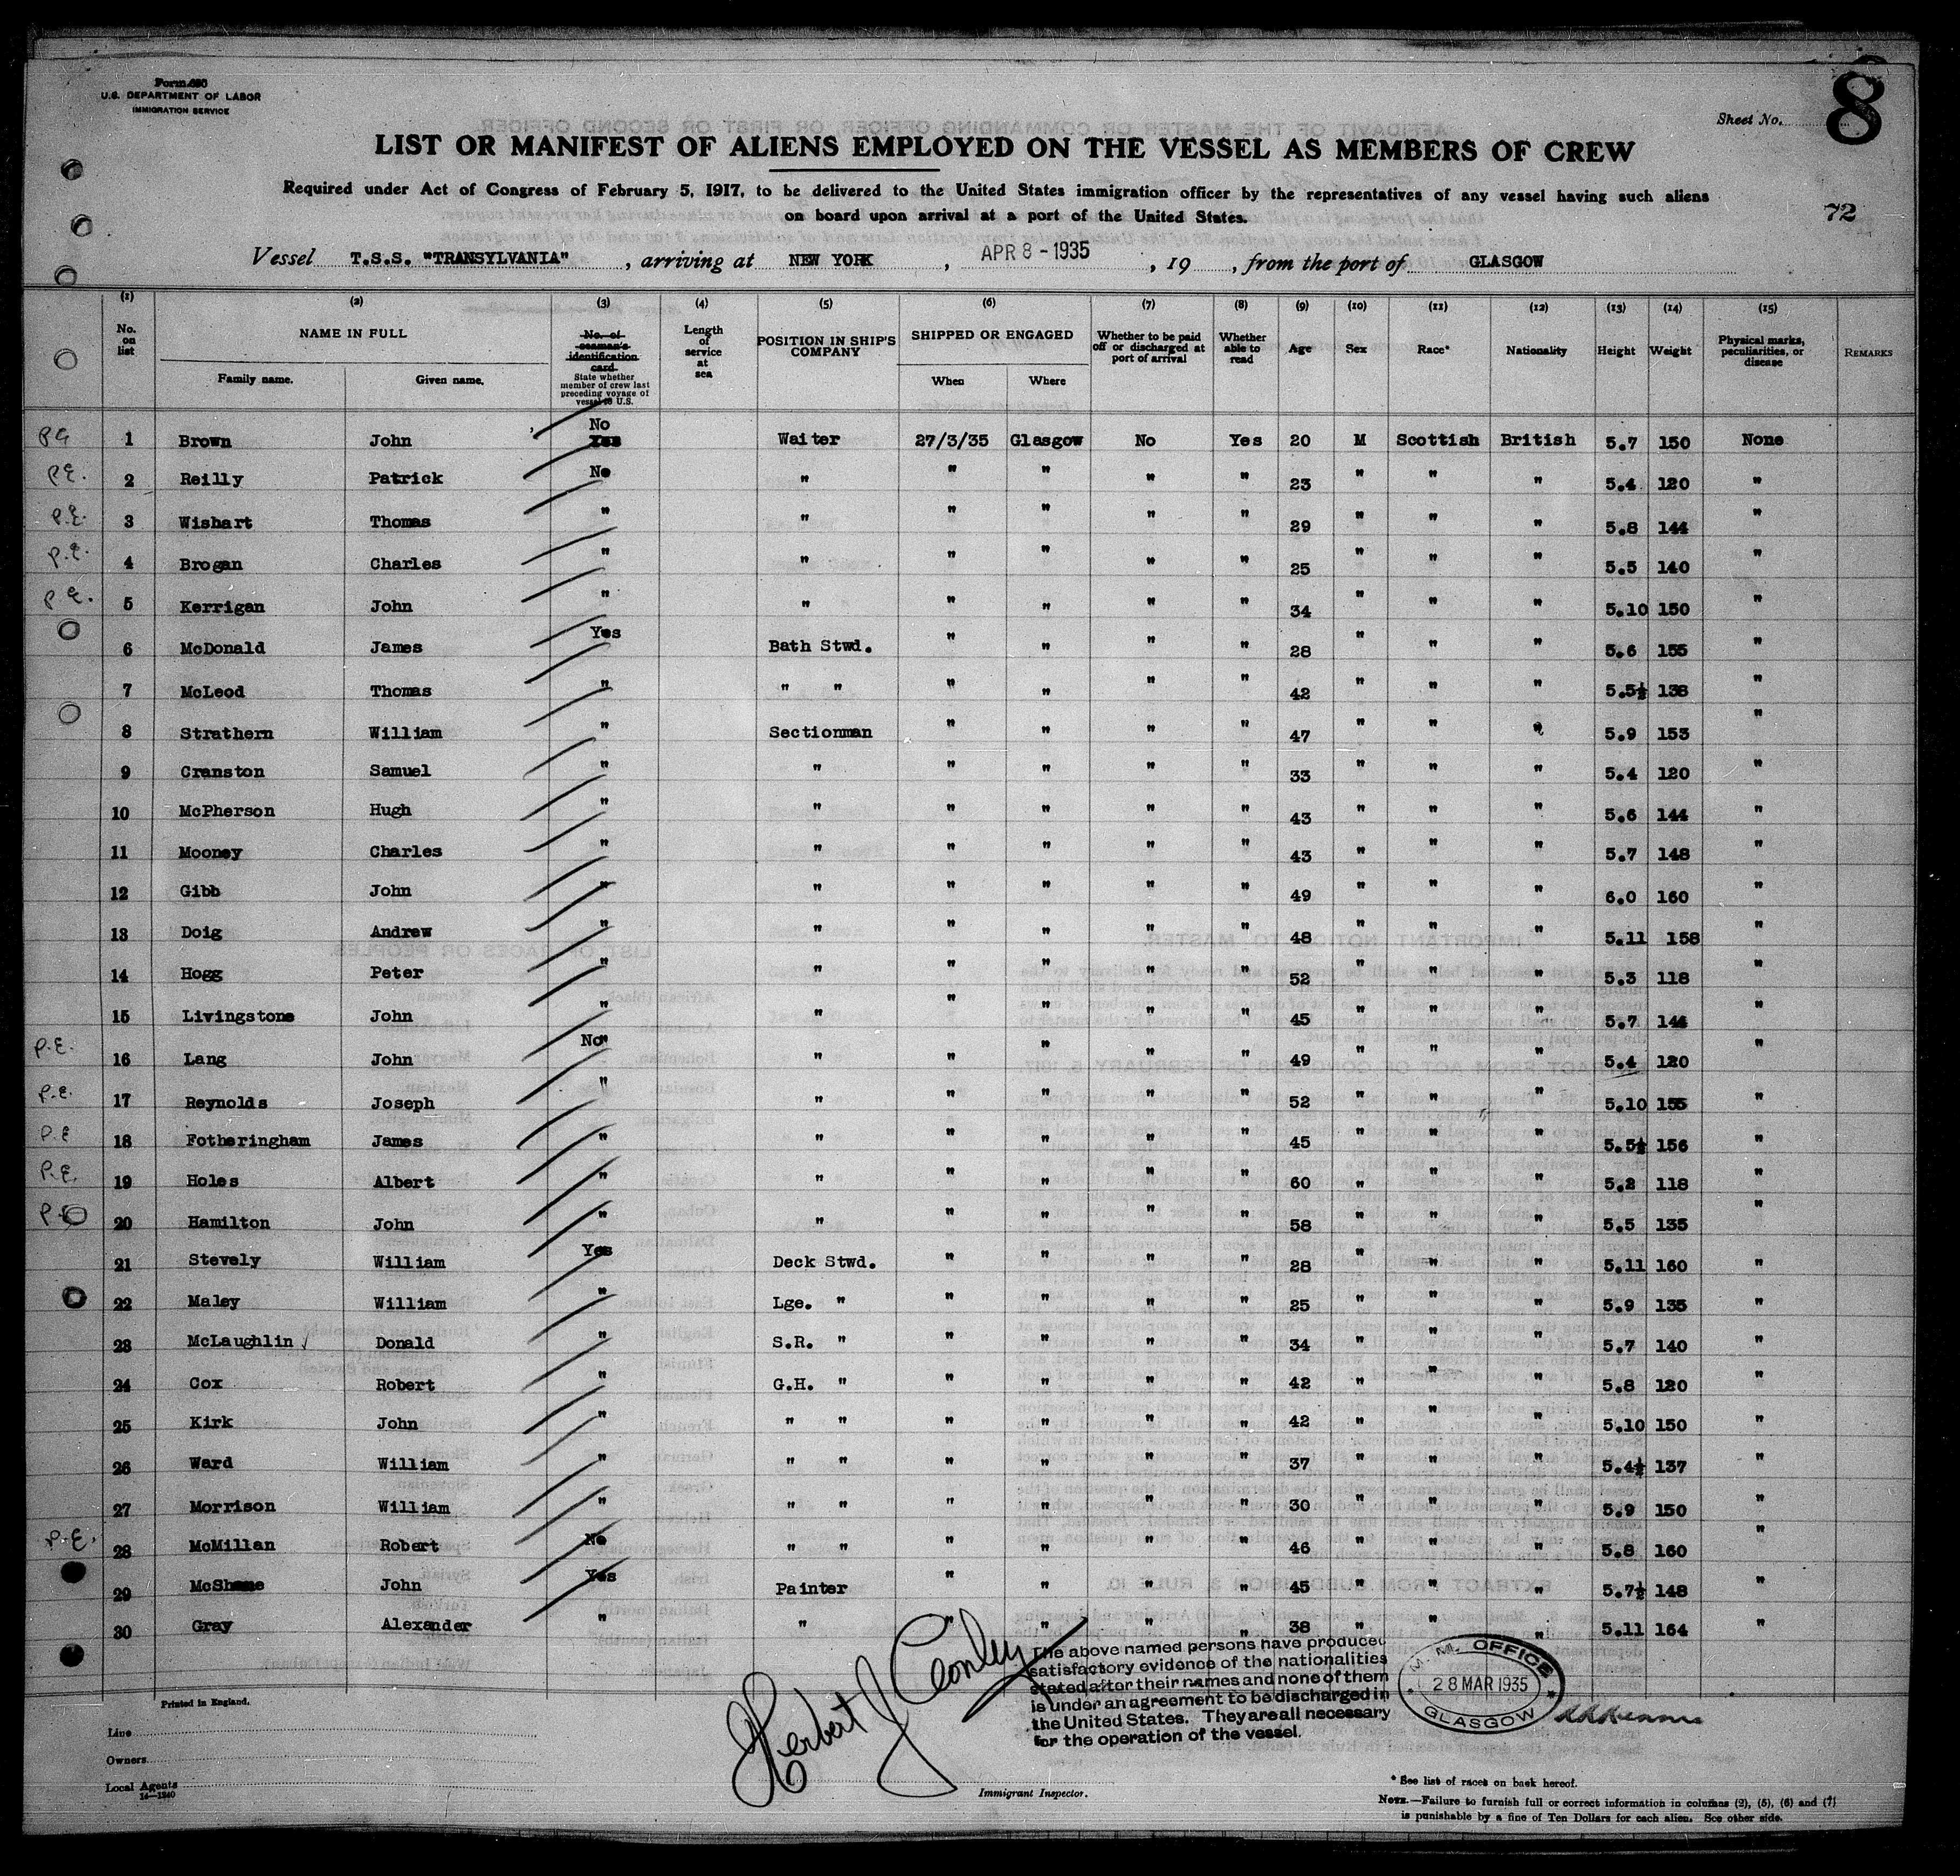 Form 680
U.S. DEPARTMENT OF LABOR
IMMIGRATION SERVICE
Sheet No. 8
LIST OR MANIFEST OF ALIENS EMPLOYED ON THE VESSEL AS MEMBERS OF CREW
Required under Act of Congress of February 5, 1917, to be delivered to the United States immigration officer by the representatives of any vessel having such aliens
on board upon arrival at a port of the United States.
72
Vessel T.S.S. "TRANSYLVANIA", arriving at NEW YORK, APR 8 - 1935, 19 , from the port of GLASGOW
(1) (2) (3) (4) (5) (6) (7) (8) (9) (10) (11) (12) (13) (14) (15)
No. on list
NAME IN FULL
Family name. Given name.
No. of seaman's identification card.
State whether member of crew last preceding voyage of vessel to U.S.
Length of service at sea
POSITION IN SHIP'S COMPANY
SHIPPED OR ENGAGED
When Where
Whether to be paid off or discharged at port of arrival
Whether able to read
Age
Sex
Race*
Nationality
Height
Weight
Physical marks, peculiarities, or disease
REMARKS
PE 1 Brown John No Yes Waiter 27/3/35 Glasgow No Yes 20 M Scottish British 5.7 150 None
P.E. 2 Reilly Patrick No " " " " " 23 " " " 5.4 120 "
P.E. 3 Wishart Thomas " " " " " " 29 " " " 5.8 144 "
P.E. 4 Brogan Charles " " " " " " 25 " " " 5.5 140 "
P.E. 5 Kerrigan John " " " " " " 34 " " " 5.10 150 "
6 McDonald James Yes Bath Stwd. " " " " 28 " " " 5.6 155 "
7 McLeod Thomas " " " " " " " 42 " " " 5.5½ 138 "
8 Strathern William " Sectionman " " " " 47 " " " 5.9 153 "
9 Cranston Samuel " " " " " " 33 " " " 5.4 120 "
10 McPherson Hugh " " " " " " 43 " " " 5.6 144 "
11 Mooney Charles " " " " " " 43 " " " 5.7 148 "
12 Gibb John " " " " " " 49 " " " 6.0 160 "
13 Doig Andrew " " " " " " 48 " " " 5.11 158 "
14 Hogg Peter " " " " " " 52 " " " 5.3 118 "
15 Livingstone John " " " " " " 45 " " " 5.7 144 "
P.E. 16 Lang John No" " " " " " 49 " " " 5.4 120 "
P.E. 17 Reynolds Joseph " " " " " " 52 " " " 5.10 155 "
P.E 18 Fotheringham James " " " " " " 45 " " " 5.5½ 156 "
P.E. 19 Holes Albert " " " " " " 60 " " " 5.2 118 "
P.E 20 Hamilton John " " " " " " 58 " " " 5.5 135 "
21 Stevely William Yes Deck Stwd. " " " " 28 " " " 5.11 160 "
22 Maley William " Lge. " " " " " 25 " " " 5.9 135 "
23 McLaughlin Donald " S.R. " " " " " 34 " " " 5.7 140 "
24 Cox Robert " G.H. " " " " " 42 " " " 5.8 120 "
25 Kirk John " " " " " " " 42 " " " 5.10 150 "
26 Ward William " " " " " " " 37 " " " 5.4½ 137 "
27 Morrison William " " " " " " " 30 " " " 5.9 150 "
P.E. 28 McMillan Robert No " " " " " " 46 " " " 5.8 160 "
29 McShane John Yes Painter " " " " 45 " " " 5.7½ 148 "
30 Gray Alexander " " " " " " 38 " " " 5.11 164 "
The above named persons have produced
satisfactory evidence of the nationalities
stated after their names and none of them
is under an agreement to be discharged in
the United States. They are all necessary
for the operation of the vessel.
M. M. OFFICE
28 MAR 1935
GLASGOW
Printed in England.
Line
Owners
Local Agents
14—1240
Immigrant Inspector.
* See list of races on back hereof.
NOTE.—Failure to furnish full or correct information in columns (2), (5), (6) and (7)
is punishable by a fine of Ten Dollars for each alien. See other side.